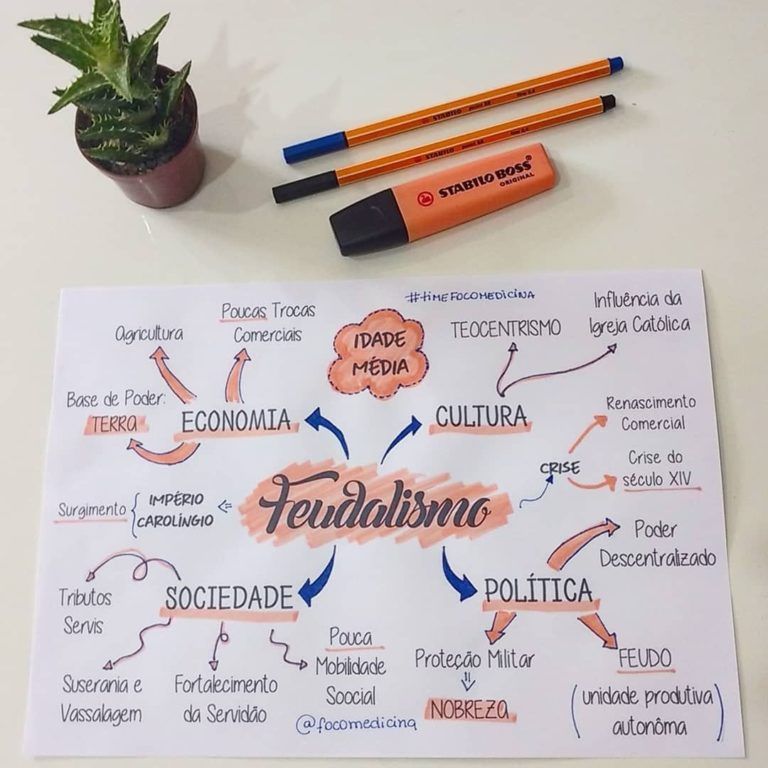 STABILO
STABILO
STABILO BOSS
ORIGINAL
#timeFOCOMEDICINA
IDADE
MÉDIA
Agricultura
Poucas Trocas
Comerciais
Base de Poder:
TERRA
ECONOMIA
TEOCENTRISMO
Influência da
Igreja Católica
CULTURA
Renascimento
Comercial
CRISE
Crise do
século XIV
Surgimento
IMPÉRIO
CAROLÍNGIO
Feudalismo
SOCIEDADE
Tributos
Servis
Suserania e
Vassalagem
Fortalecimento
da Servidão
Pouca
Mobilidade
Soocial
POLÍTICA
Poder
Descentralizado
Proteção Militar
NOBREZA
FEUDO
(unidade produtiva
autonôma)
@focomedicina